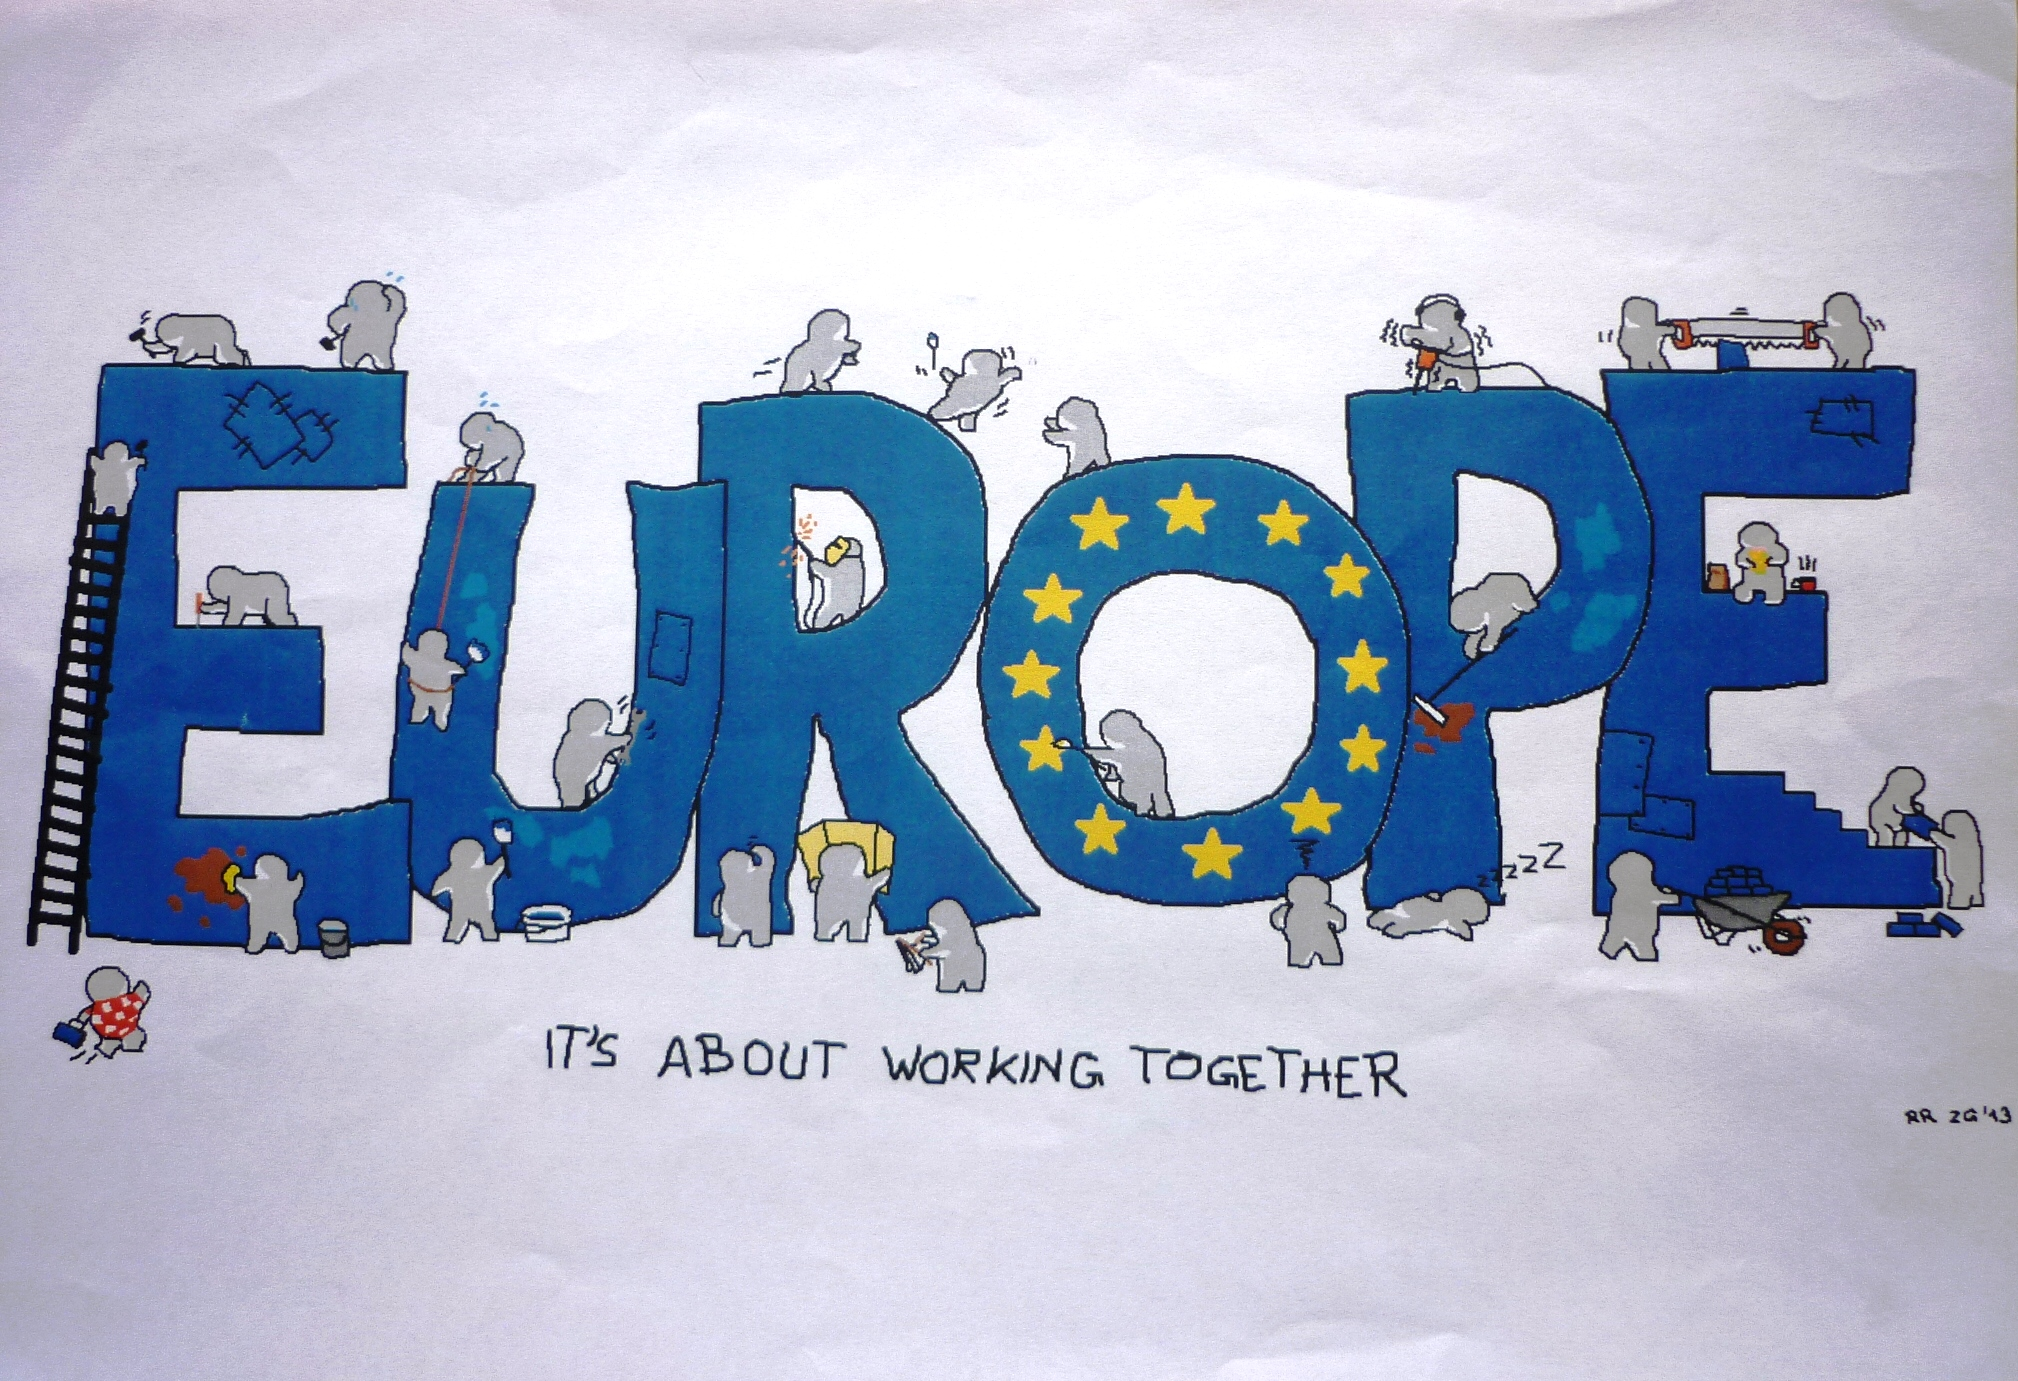 EUROPE
zzzzZ
IT'S ABOUT WORKING TOGETHER
RR ZG'13